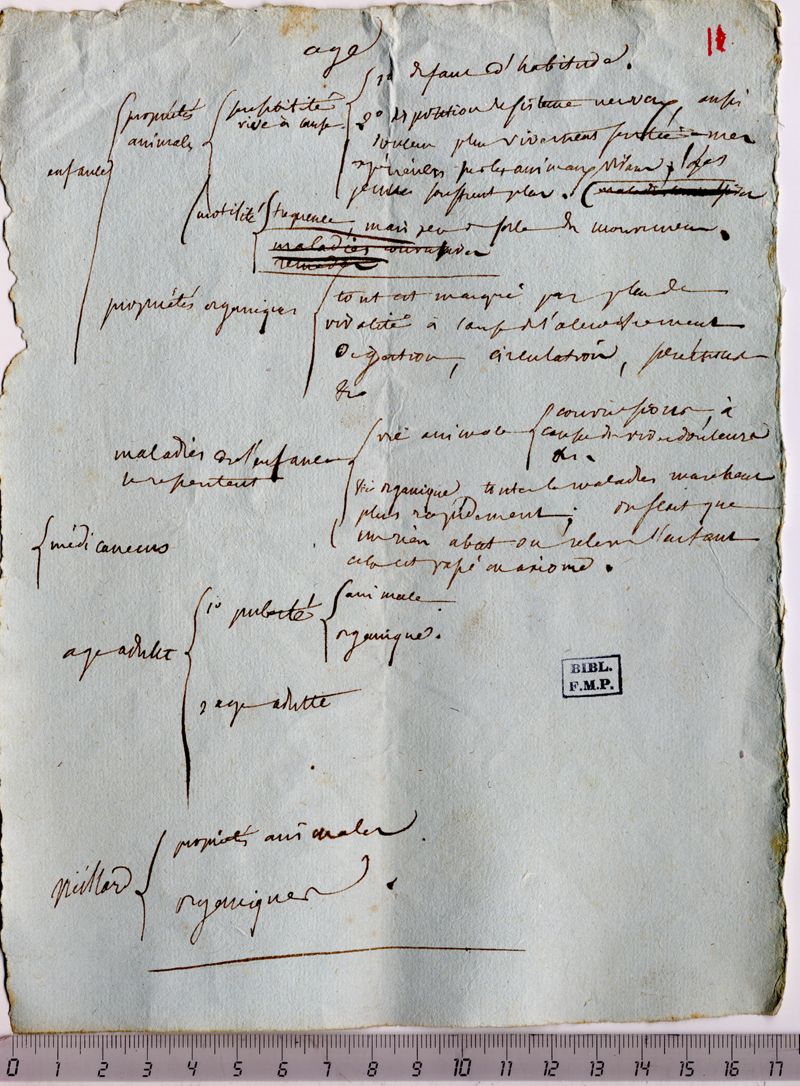 age
11
1o defaut d'habitude.
enfance
propriétés animales
sensibilité vive à cause
2o disposition du sisteme nerveux, aussi
douleur plus vivement
animaux vivans, les
jeunes souffrent plus.
motilité
frequence, mais peu de force de mouvement.
maladies
remedes
propriétés organiques
tout est marqué par plus de
vitalité à cause de l'accroissement
digestion, circulation,
&c
maladies de l'enfance
se repentent
vie animale
convulsions à
cause de vives douleurs
&c.
vie organique toutes les maladies marchent
plus rapidement; on sait que
un rien abat ou releve l'enfant
cela est passé en axiome.
médicamens
age adulte
1o puberté
animale
organique.
2 age adulte
vieillard
propriétés animales
organiques
BIBL.
F.M.P.
0 1 2 3 4 5 6 7 8 9 10 11 12 13 14 15 16 17